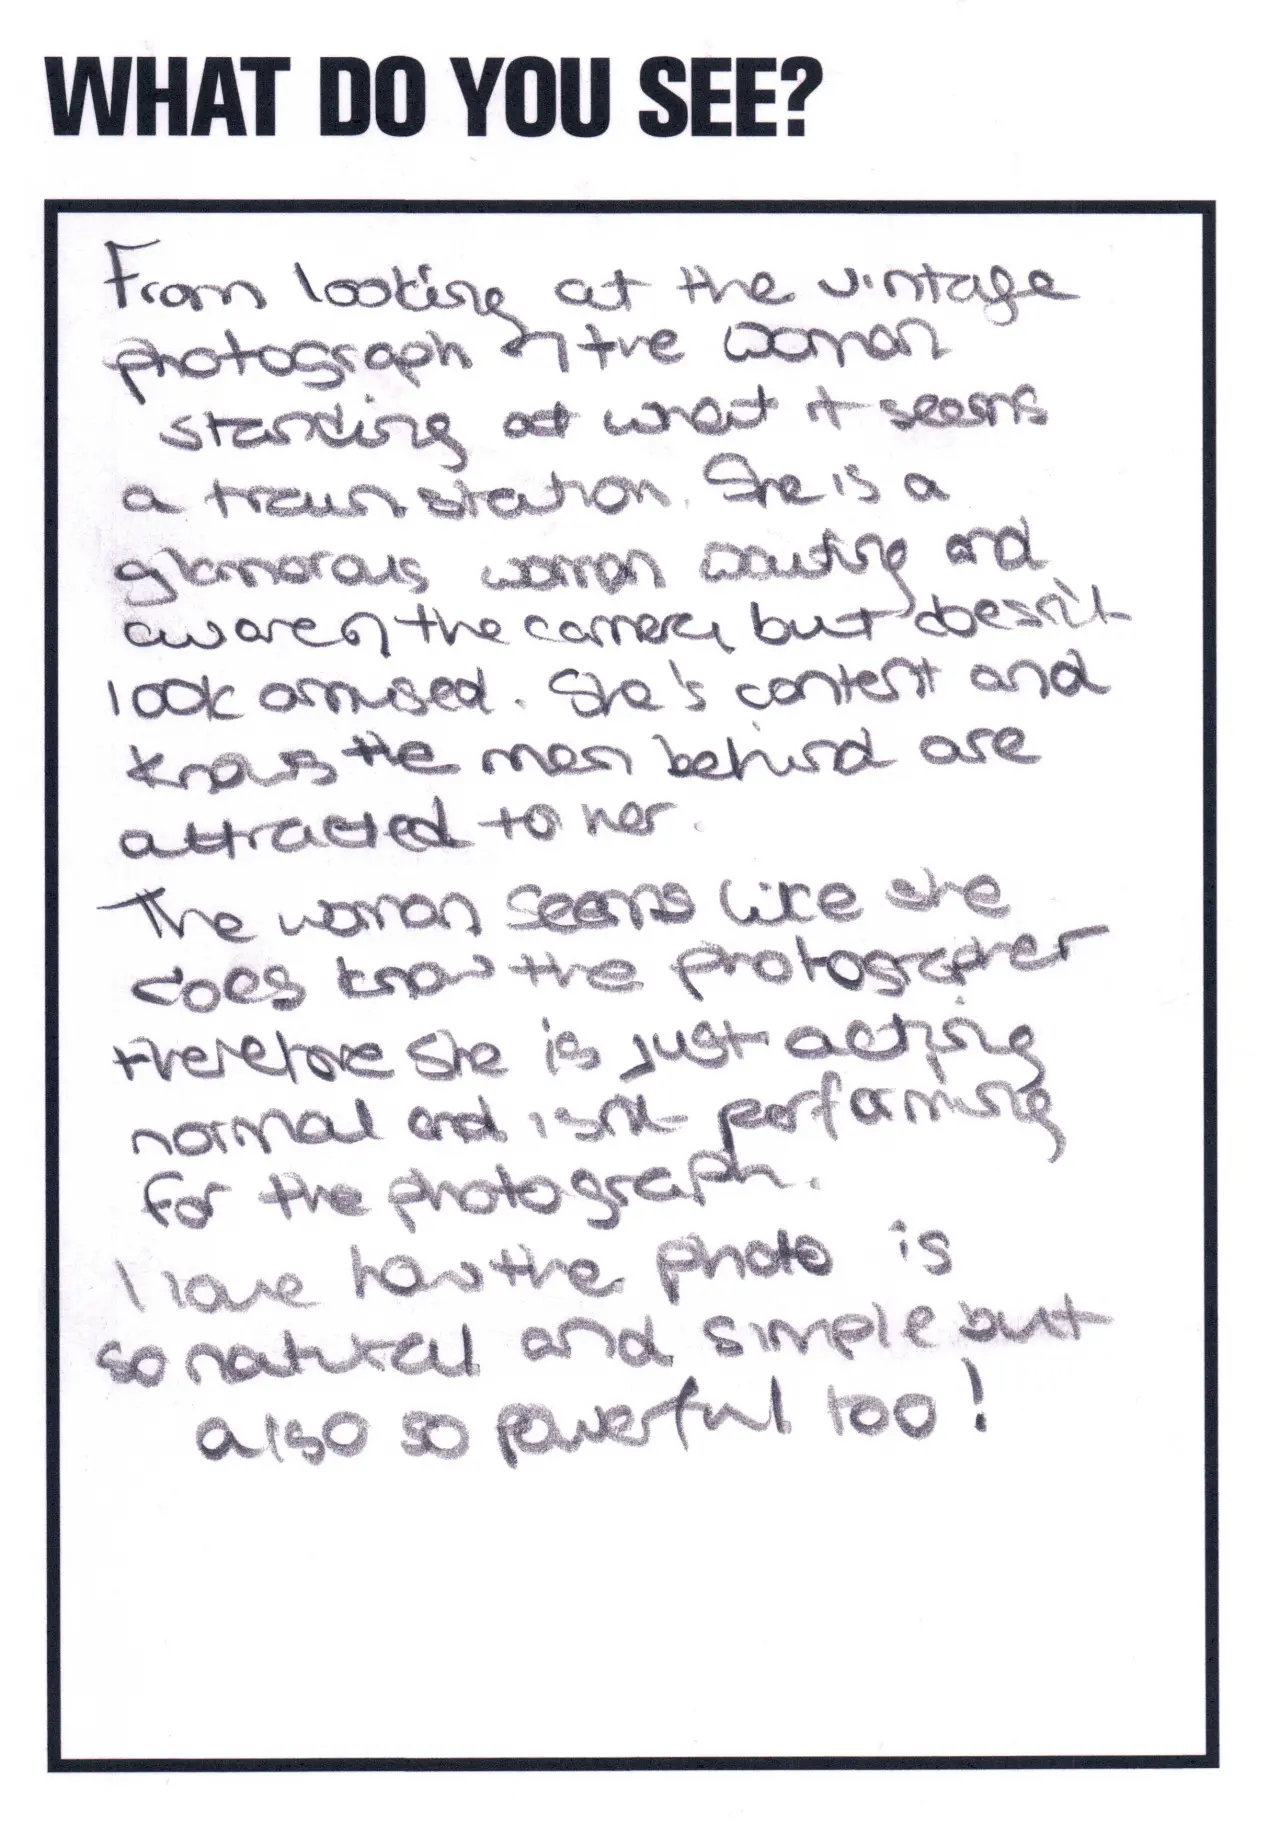 WHAT DO YOU SEE?
From looking at the vintage
photograph of the woman
standing at what it seems
a train station. She is a
glamorous woman waiting and
aware of the camera, but doesn't
look amused. She's content and
knows the men behind are
attracted to her.
The woman seems like she
does know the photographer
therefore she is just acting
normal and isn't performing
for the photograph.
I love how the photo is
so natural and simple but
also so powerful too!